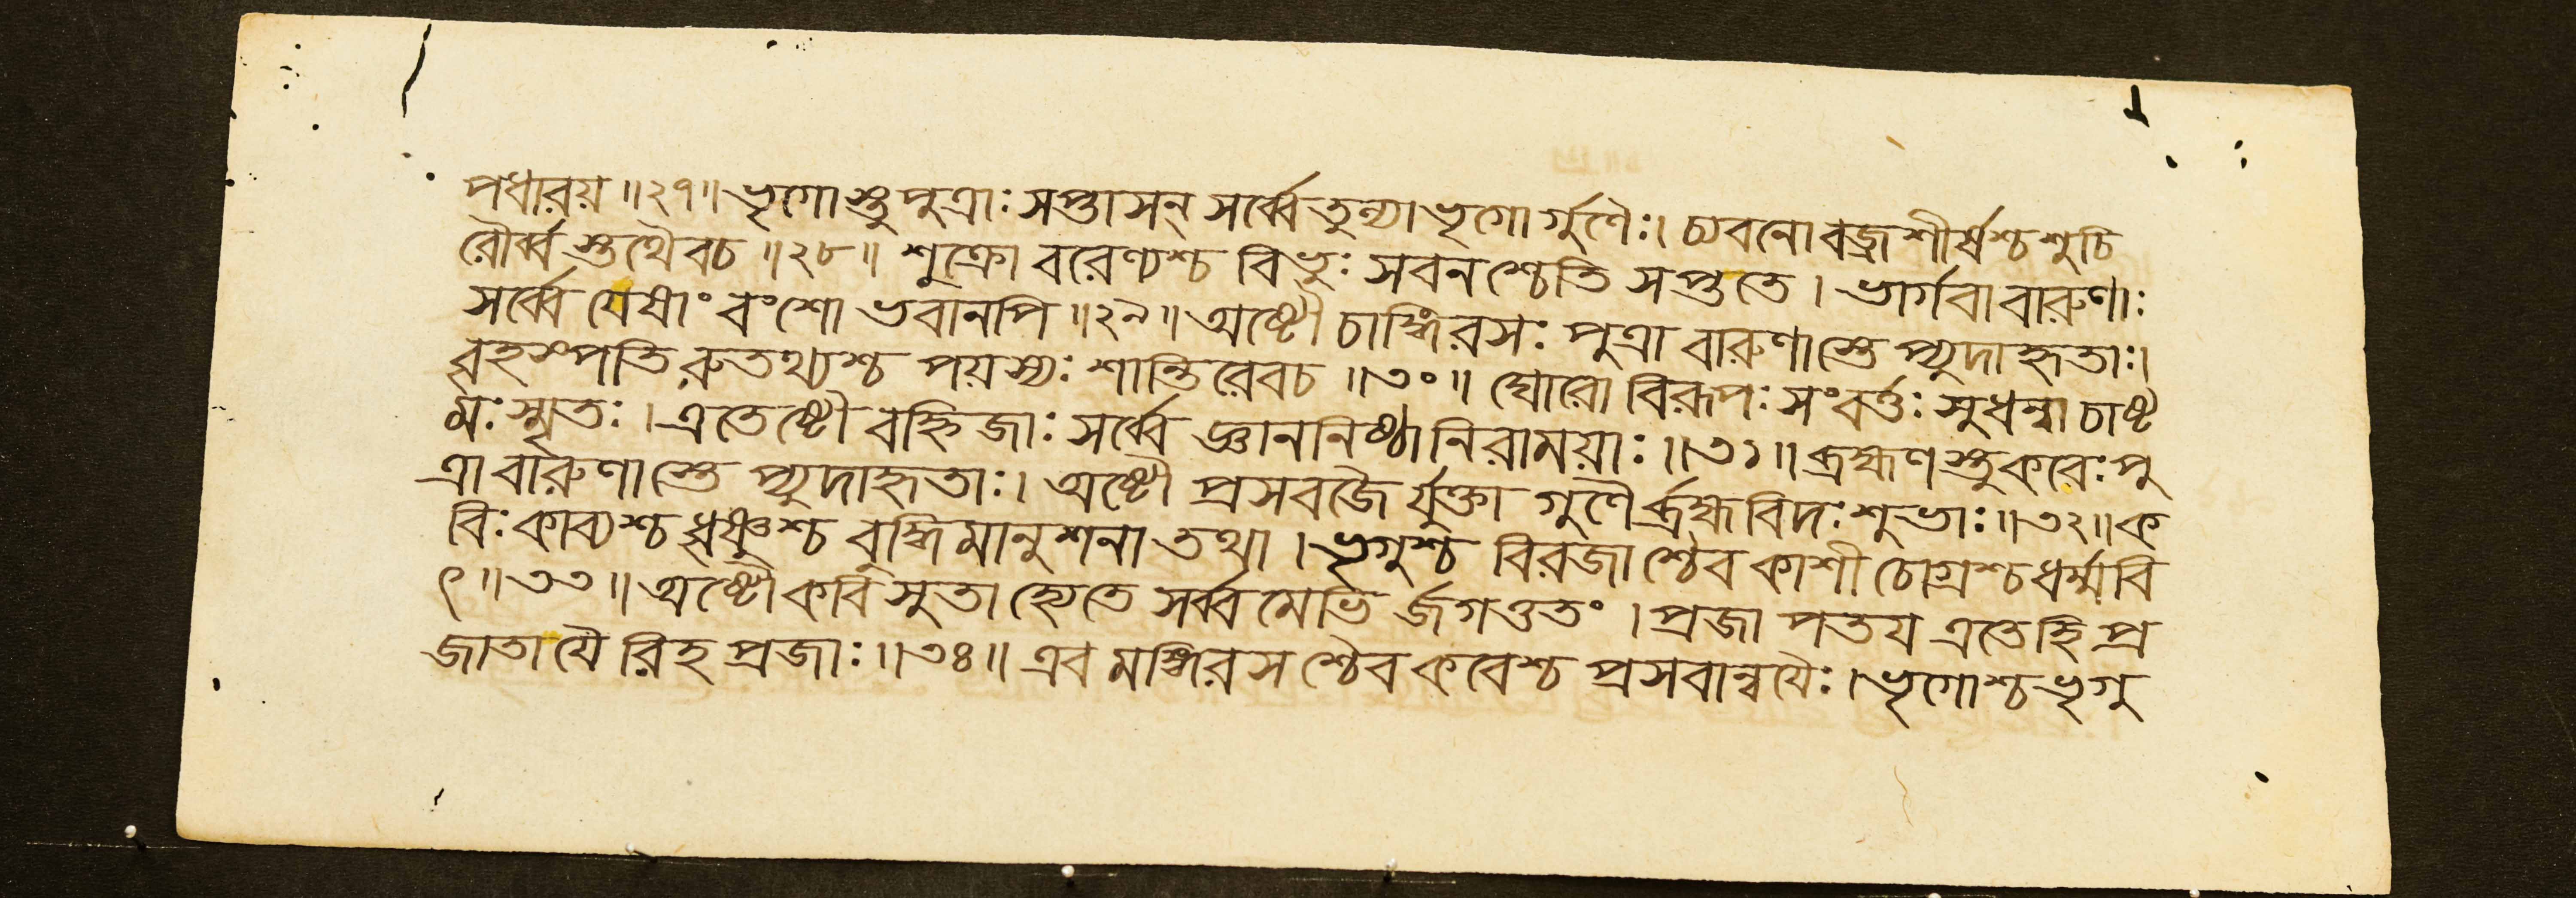 পধারয় ॥২৭॥ ভৃগোস্তু পুত্রাঃ সপ্তাসন্ সর্ব্বে তুল্যা ভৃগোর্গুণৈঃ। চ্যবনো বজ্রশীর্ষশ্চ শুচি
রৌর্ব্ব স্তথৈবচ ॥২৮॥ শুক্রো বরেণ্যশ্চ বিভুঃ সবনশ্চেতি সপ্ততে । ভার্গবা বারুণাঃ
সর্ব্বে যেষাং বংশো ভবানপি ॥২৯॥ অষ্টৌ চাঙ্গিরসঃ পুত্রা বারুণাস্তে প্যুদাহৃতাঃ।
বৃহস্পতি রুতথ্যশ্চ পয়স্যঃ শান্তিরেবচ ॥৩০॥ ঘোরো বিরূপঃ সংবর্ত্তঃ সুধন্বা চাষ্ট
মঃ স্মৃতঃ । এতেষ্টৌ বহ্নিজাঃ সর্ব্বে জ্ঞাননিষ্ঠা নিরাময়াঃ ॥৩১॥ ব্রহ্মণস্তু কবেঃ পু
ত্রা বারুণাস্তে প্যুদাহৃতাঃ। অষ্টৌ প্রসবজৈ র্যুক্তা গুণৈর্ব্রহ্মবিদঃ শুভাঃ ॥৩২॥ ক
বিঃ কাব্যশ্চ ধৃষ্ণুশ্চ বুদ্ধিমানুশনা তথা । ভৃগুশ্চ বিরজাশ্চৈব কাশী চোগ্রশ্চ ধর্ম্মবি
ৎ ॥৩৩॥ অষ্টৌ কবিসুতা হ্যেতে সর্ব্বমেভি র্জগত্ততং । প্রজাপতয় এতেহি প্র
জাতা যৈ রিহ প্রজাঃ ॥৩৪॥ এবমঙ্গিরসশ্চৈব কবেশ্চ প্রসবান্বয়ৈঃ । ভৃগোশ্চ ভৃগু